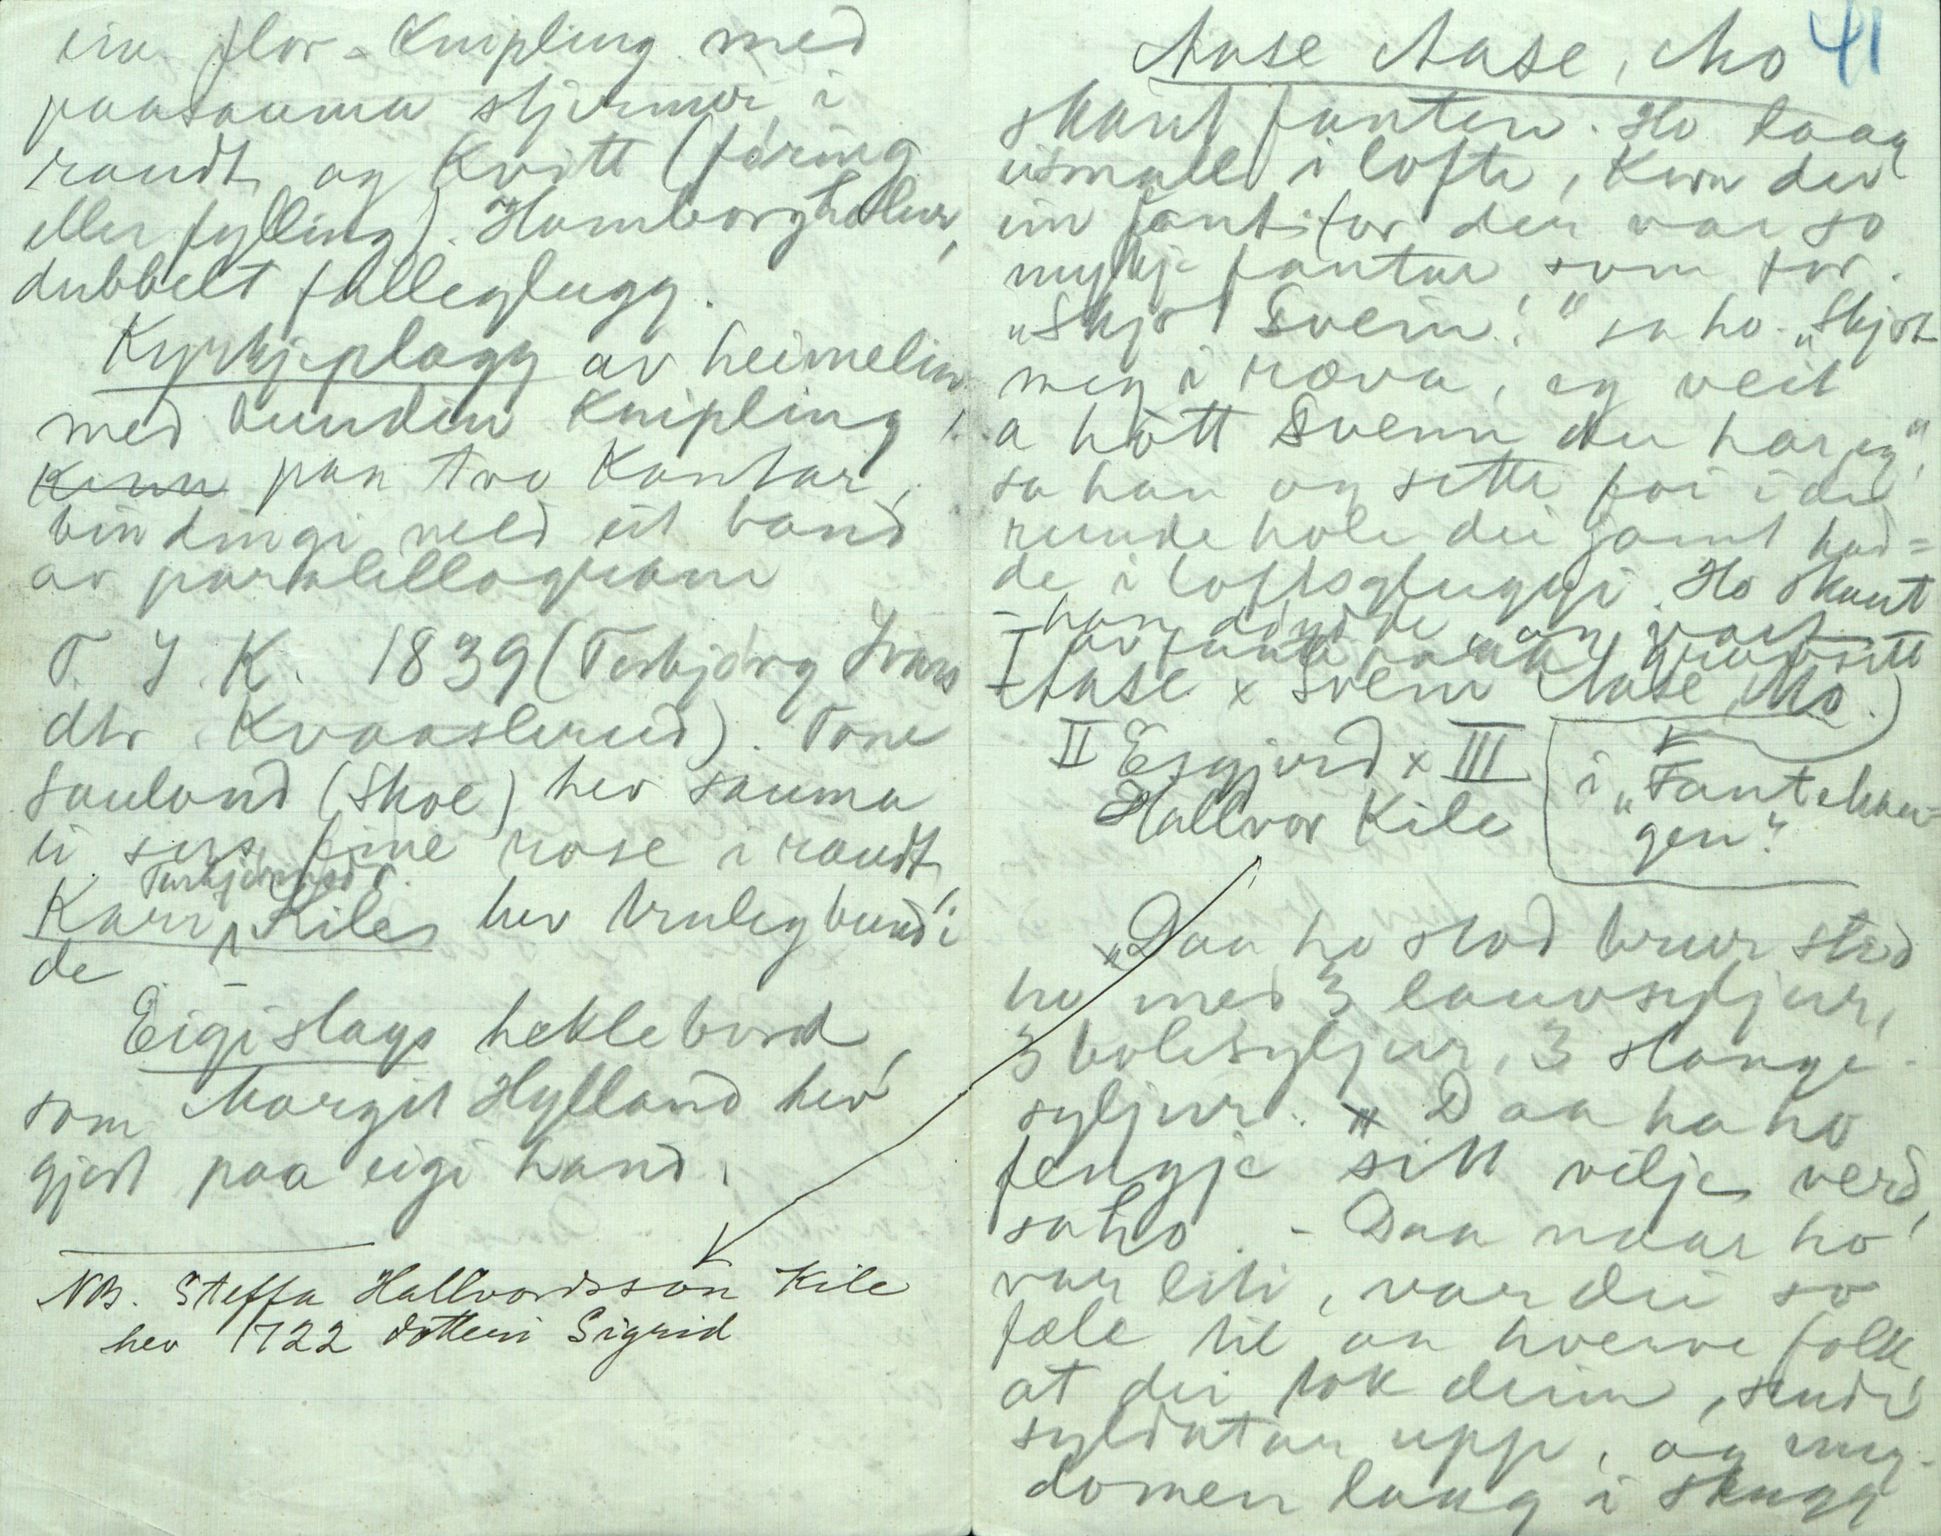 ein flor-Knipling med
paasauma stjernur i
raudt og Kvitt (foring
eller fylling). Hamborgholur,
dubbelt falleglugg.
Kyrkjeplagg av heimelin
med bundin Knipling
paa tvo Kantar,
bindingi med eit band
av paralellogram
T. I. K. 1839 (Torbjørg Ivars
dtr. Kvaaslerud). Tone
Sauland (Skoe) hev sauma
ti sers fine rose i raudt,
Torbjørnsd.
Kari Kiles hev truleg bundi
de
Eigislags heklebord,
som Margit Hylland hev
gjort paa eigi hand.
NB. Steffa Hallvordsson Kile
hev 1722 dotteri Sigrid
Aase Aase, Mo 41
skaut fanten. Ho laag
eismall i lofte, Kom dei
ein fant, for der var so
mykje fantar som for.
"Skjot Svein!" sa ho. "Skjot
meg i ræva, eg veit
a hott Svein du har eg",
sa han og sette foi i de
runde hole dei jamt had=
de i loftsgluggji. Ho skaut
- han døydde
I Aase x Svein Aase, Mo.)
II Esgjerd x III
Hallvor Kile
i "Fantehau=
gen".
"Daa ho stod brur stod
ho med 3 lauvsyljur,
3 bolesyljur, 3 stange-
syljur. "Daa ha ho
fengje sitt vilje verd,
sa ho. - Daa naar ho
var liti, var dei so
fæle til an hverve folk
at dei tok deim, sende
syldatar upp, og ung-
domen laag i skugg